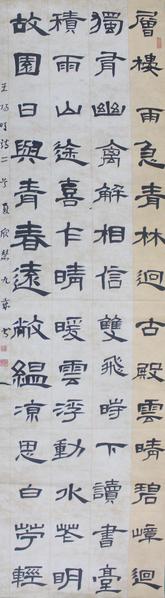 層樓雨急青林迥古殿雲晴碧嶂迴
獨有幽禽解相信雙飛時下讀書臺
積雨山途喜乍晴暖雲浮動水花明
故園日與青春遠敝縕凉思白苧輕
王陽明詩二首